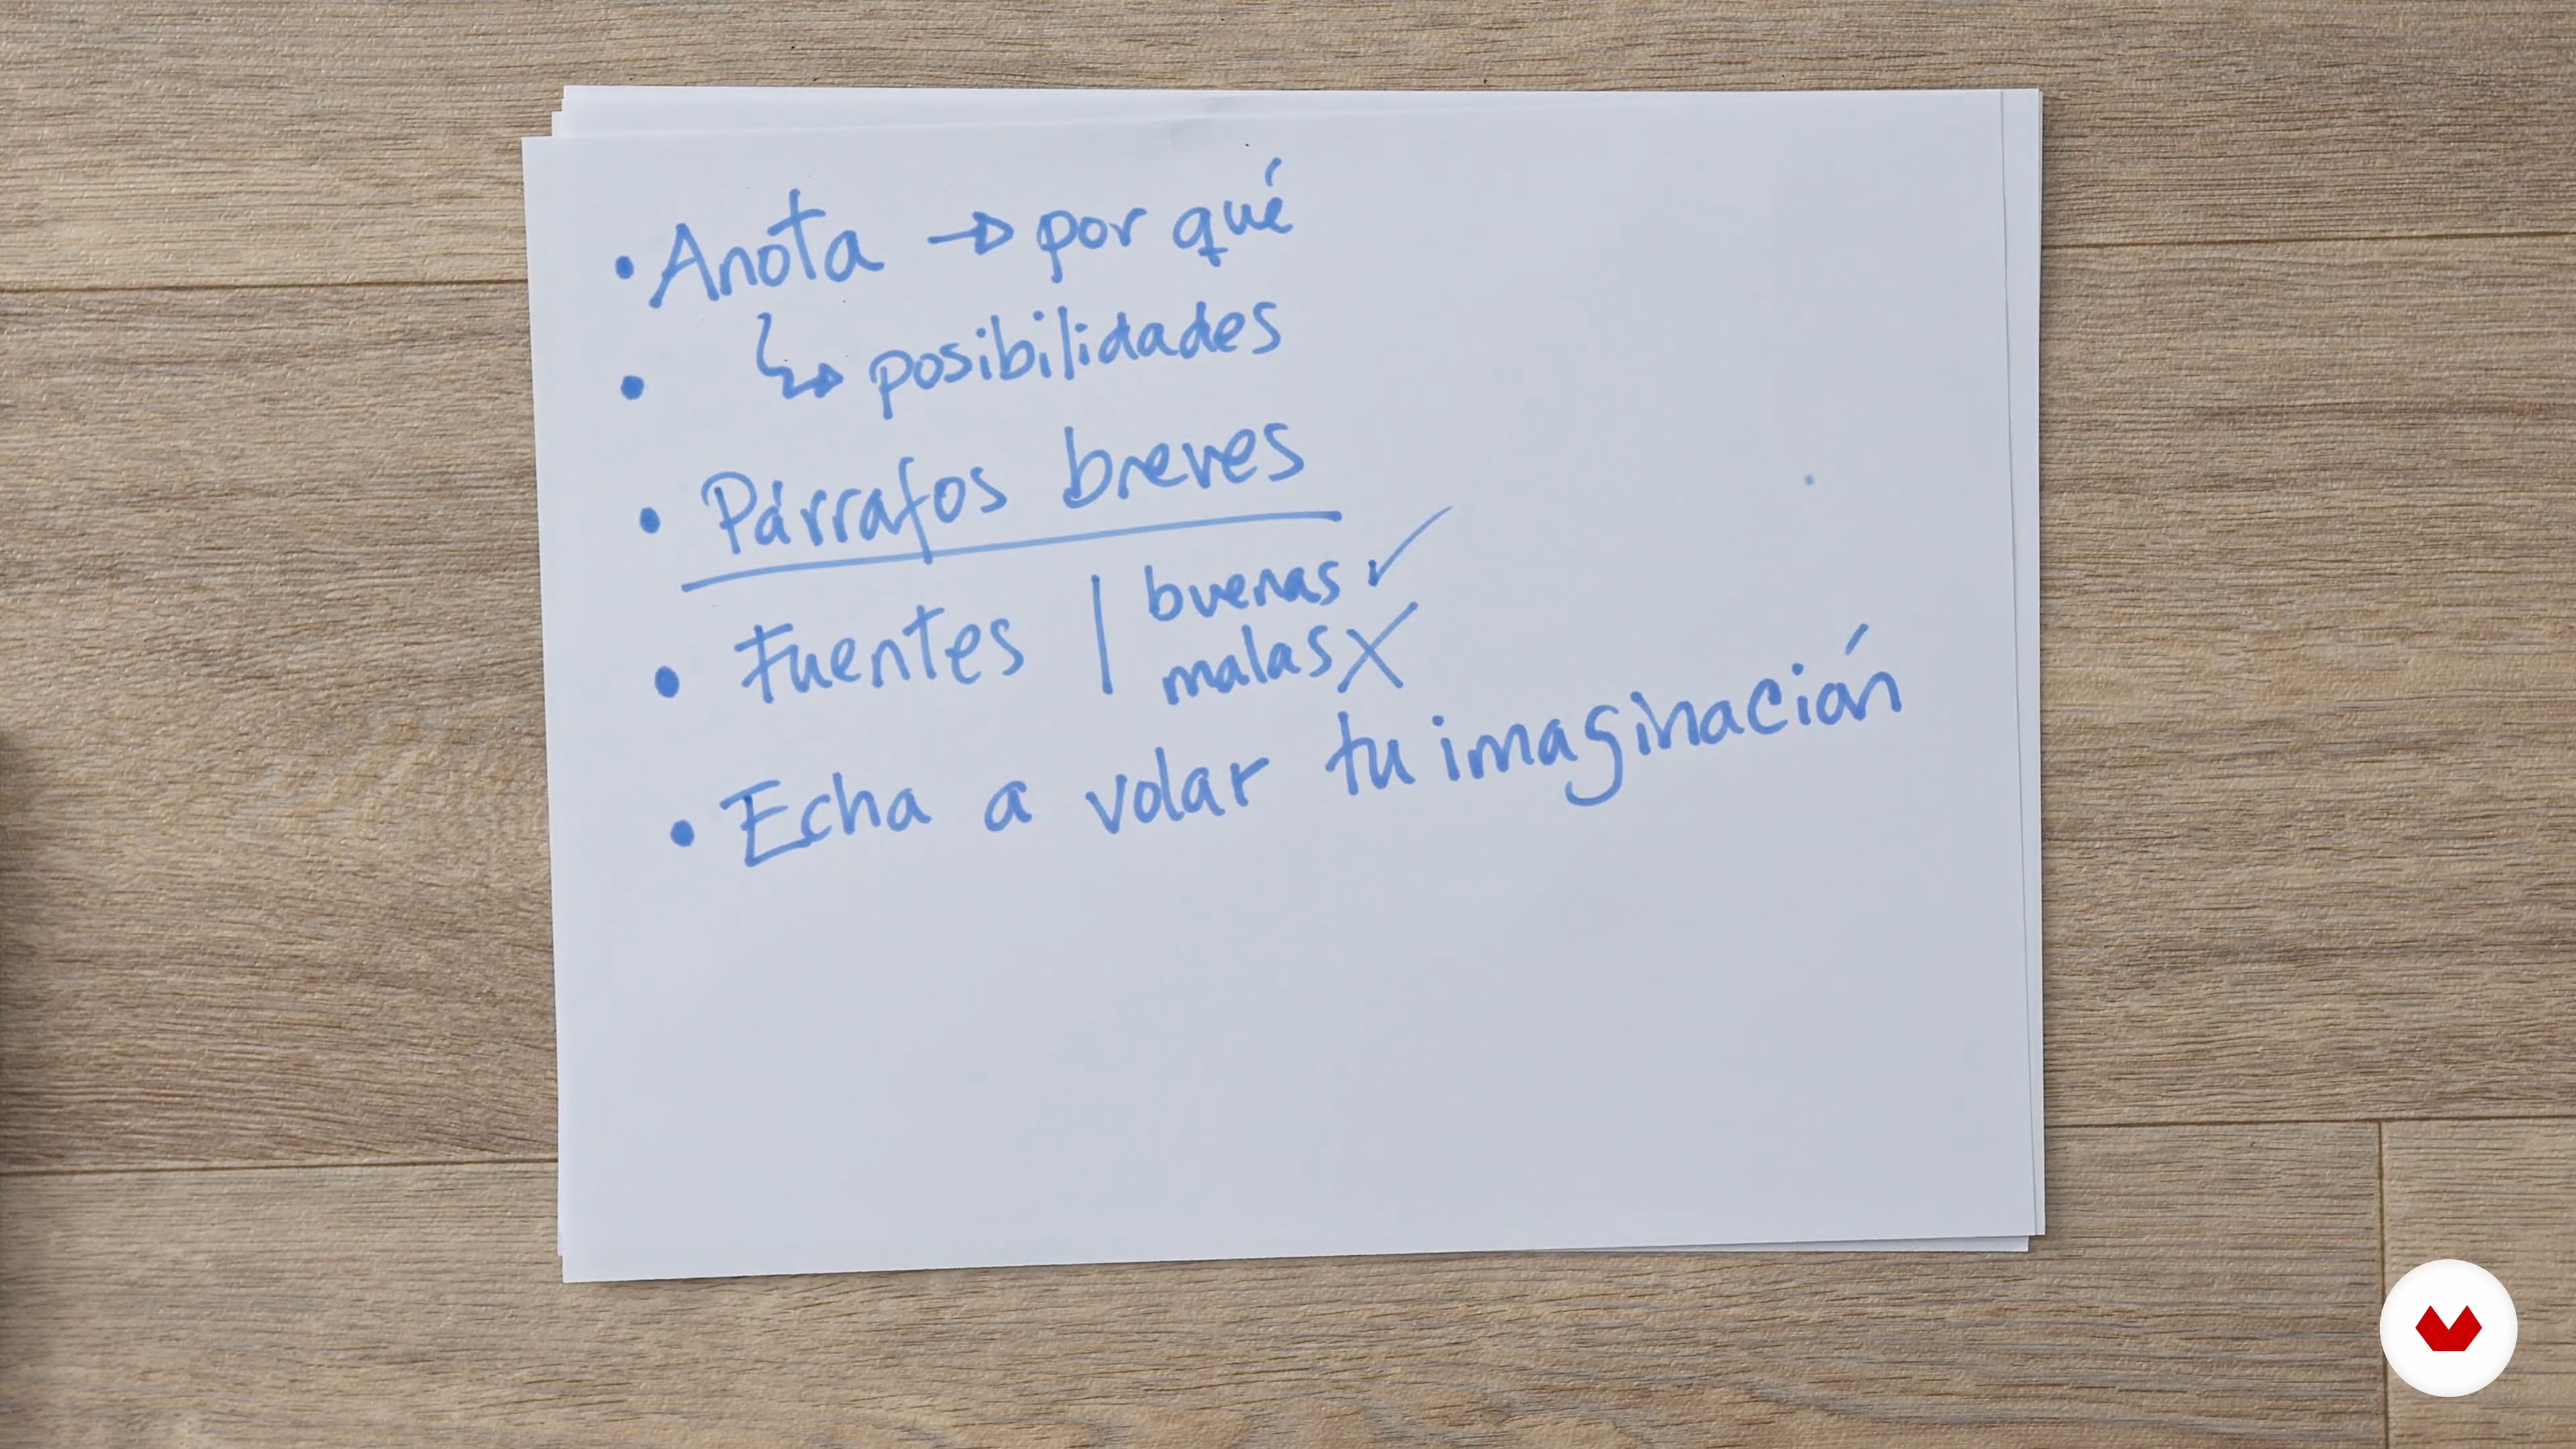 • Anota → por qué
• ↳ posibilidades
• Párrafos breves
• Fuentes | buenas ✓
malas X
• Echa a volar tu imaginación